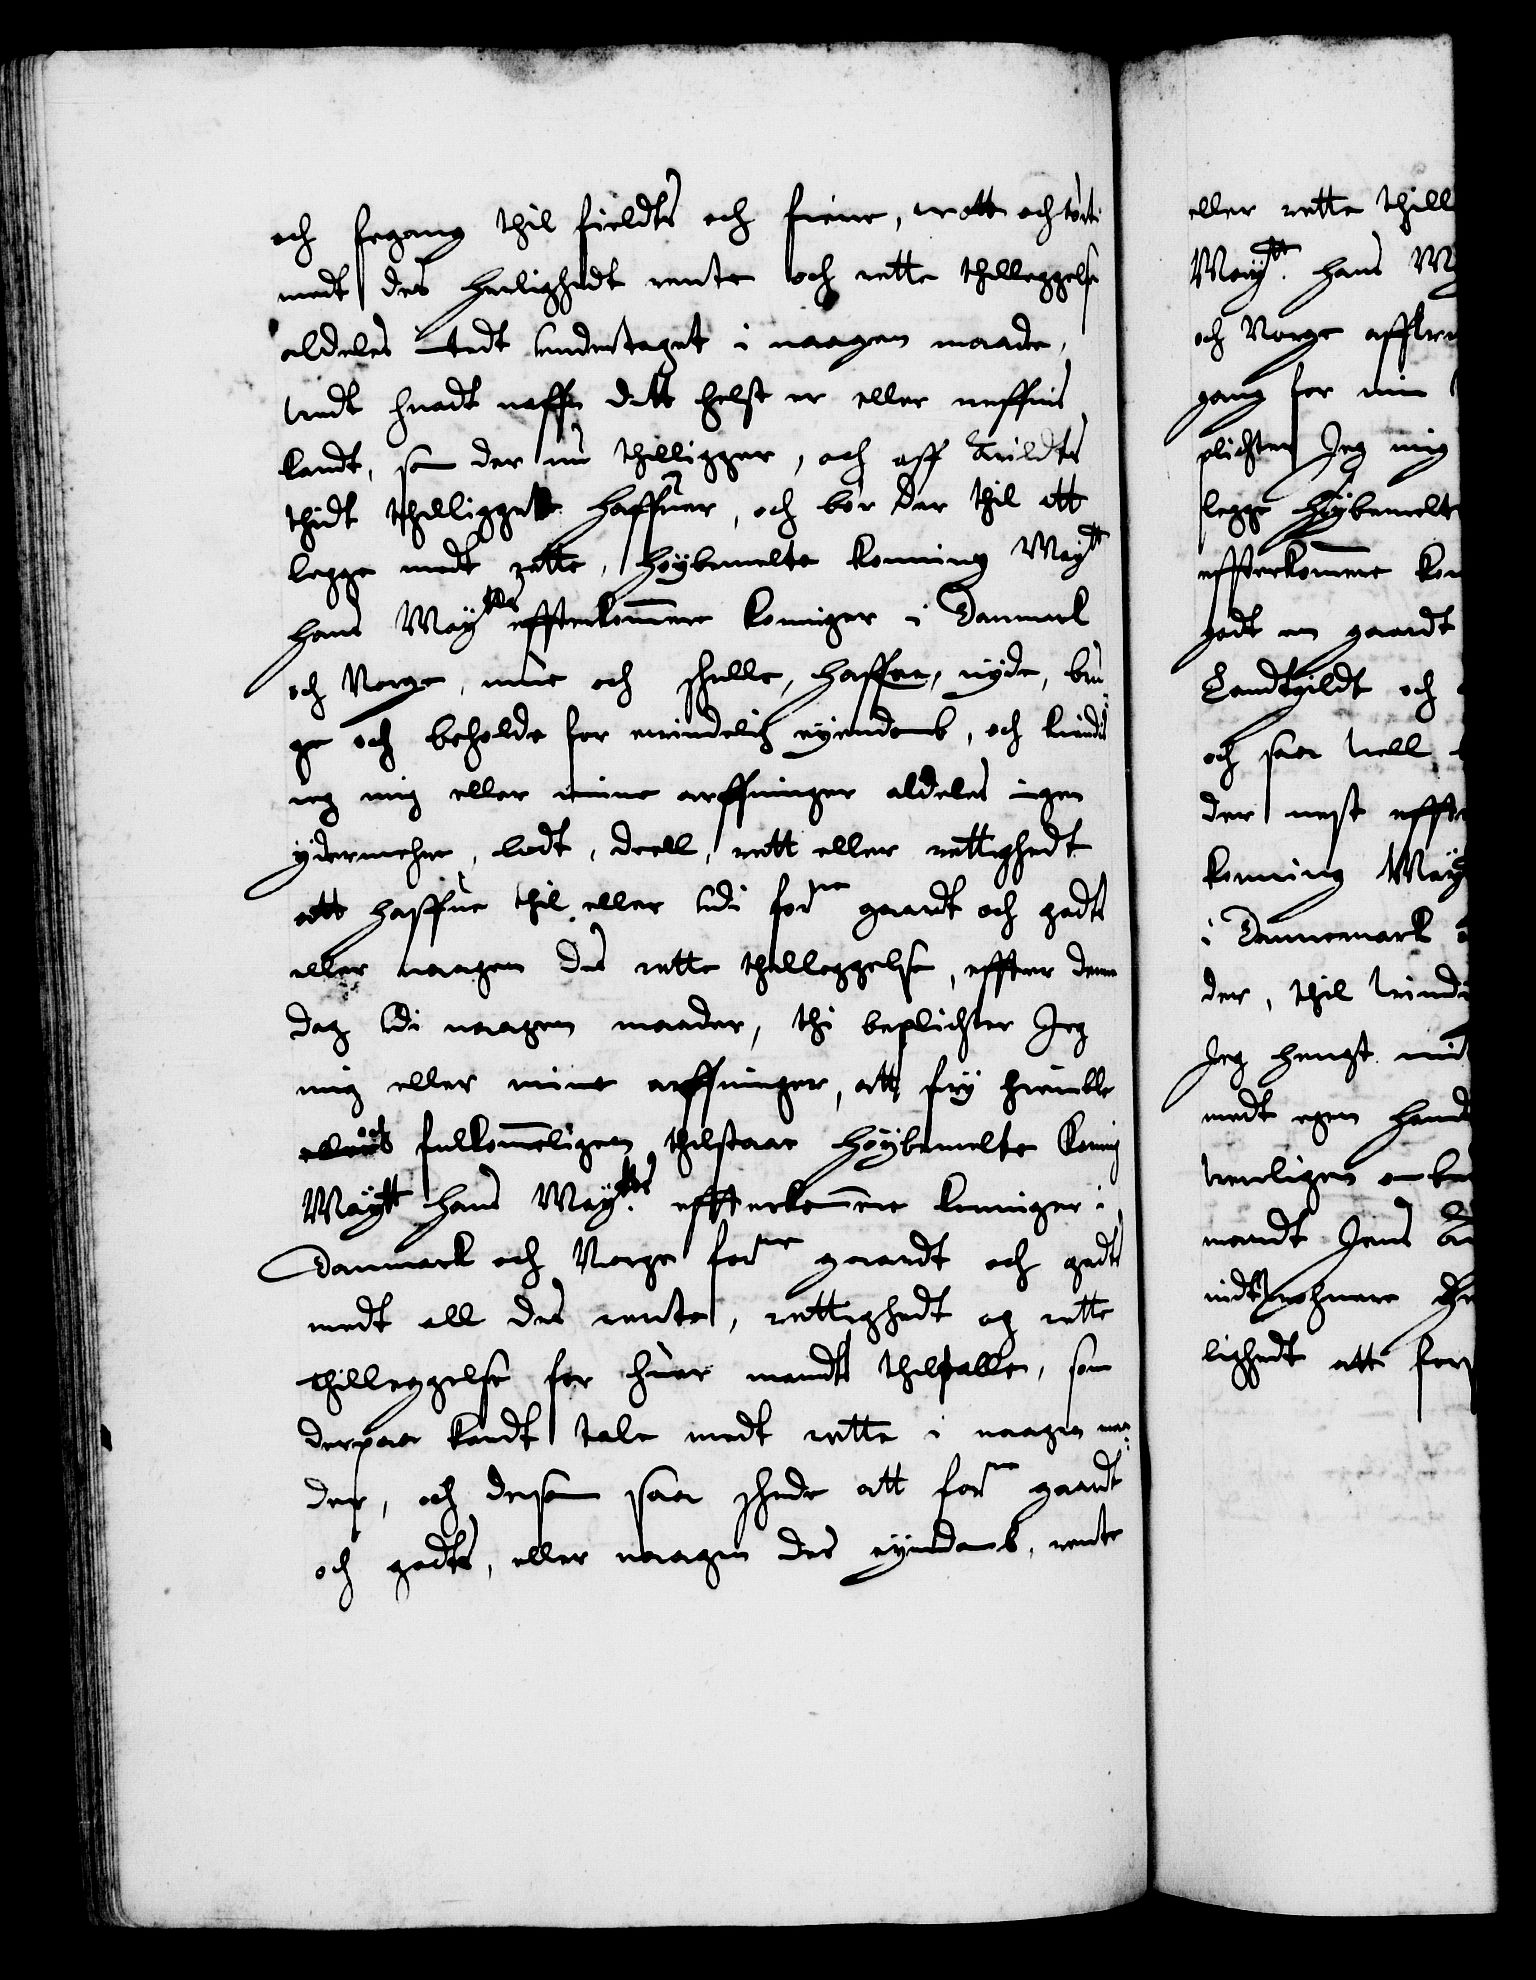 och fegang thil fieldts och fiere, wott och tört
medt des herlighedt rente och rette thilleggelse
aldeles intedt undertaget i naagen maade,
uedt huadt naffn dett helst er eller neffnis
kandt, som der nu thilligger, och aff Arildts
thidt thilligget haffuer, och bör der thil att
legge medt rette, Höybemelte konning Maytt
hans Maytts effterkommere konninger i Danmark
och Norge, mue och schulle, haffue, nyde, bru
ge och beholde for euindelich eyendomb, och kiendis
ieg mig eller mine arffuinger aldeles ingen
ydermehre, lodt, deell, rett eller rettighedt
att haffue thil eller udi forne gaardt och godts
eller naagen des rette thilleggelse, effter denne
dag udi naagen maader, thi beplichter Jeg
mig eller mine arffuinger, att fry hiemble
och fulkommeligen thilstaae Höybemelte Koning
Maytt hans Maytts effterkommere koninger i
Danmark och Norge forne gaardt och godts
medt all des rente, rettighedt og rette
thilleggelse for huer mandts thiltalle, som
derpaa kandt tale medt rette i naagen maa
der, och dersom saa schede att forne gaardt
och godts, eller naagen des eyendomb, rente
eller rette thill
Maytt. hans My
och Norge affkre
gang for min
plichter Jeg mig
legge Höybemelte
effterkommere kon
godt en gaardt
Landtgildt och
och saa uell
der nest effte
konning Mayt
i Dannemark
der, thil uindi
Jeg hengt mit
medt egen hand
uenligen ombe
mandt Jens
lighedt att for